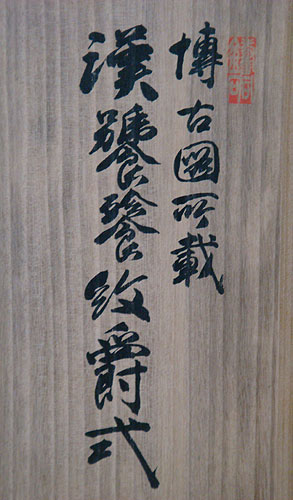 博古圖所載
漢饕餮紋爵式